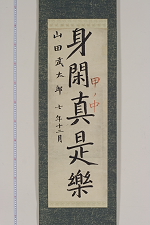 身閑真是樂
甲ノ中
山田武太郎 七年十二月